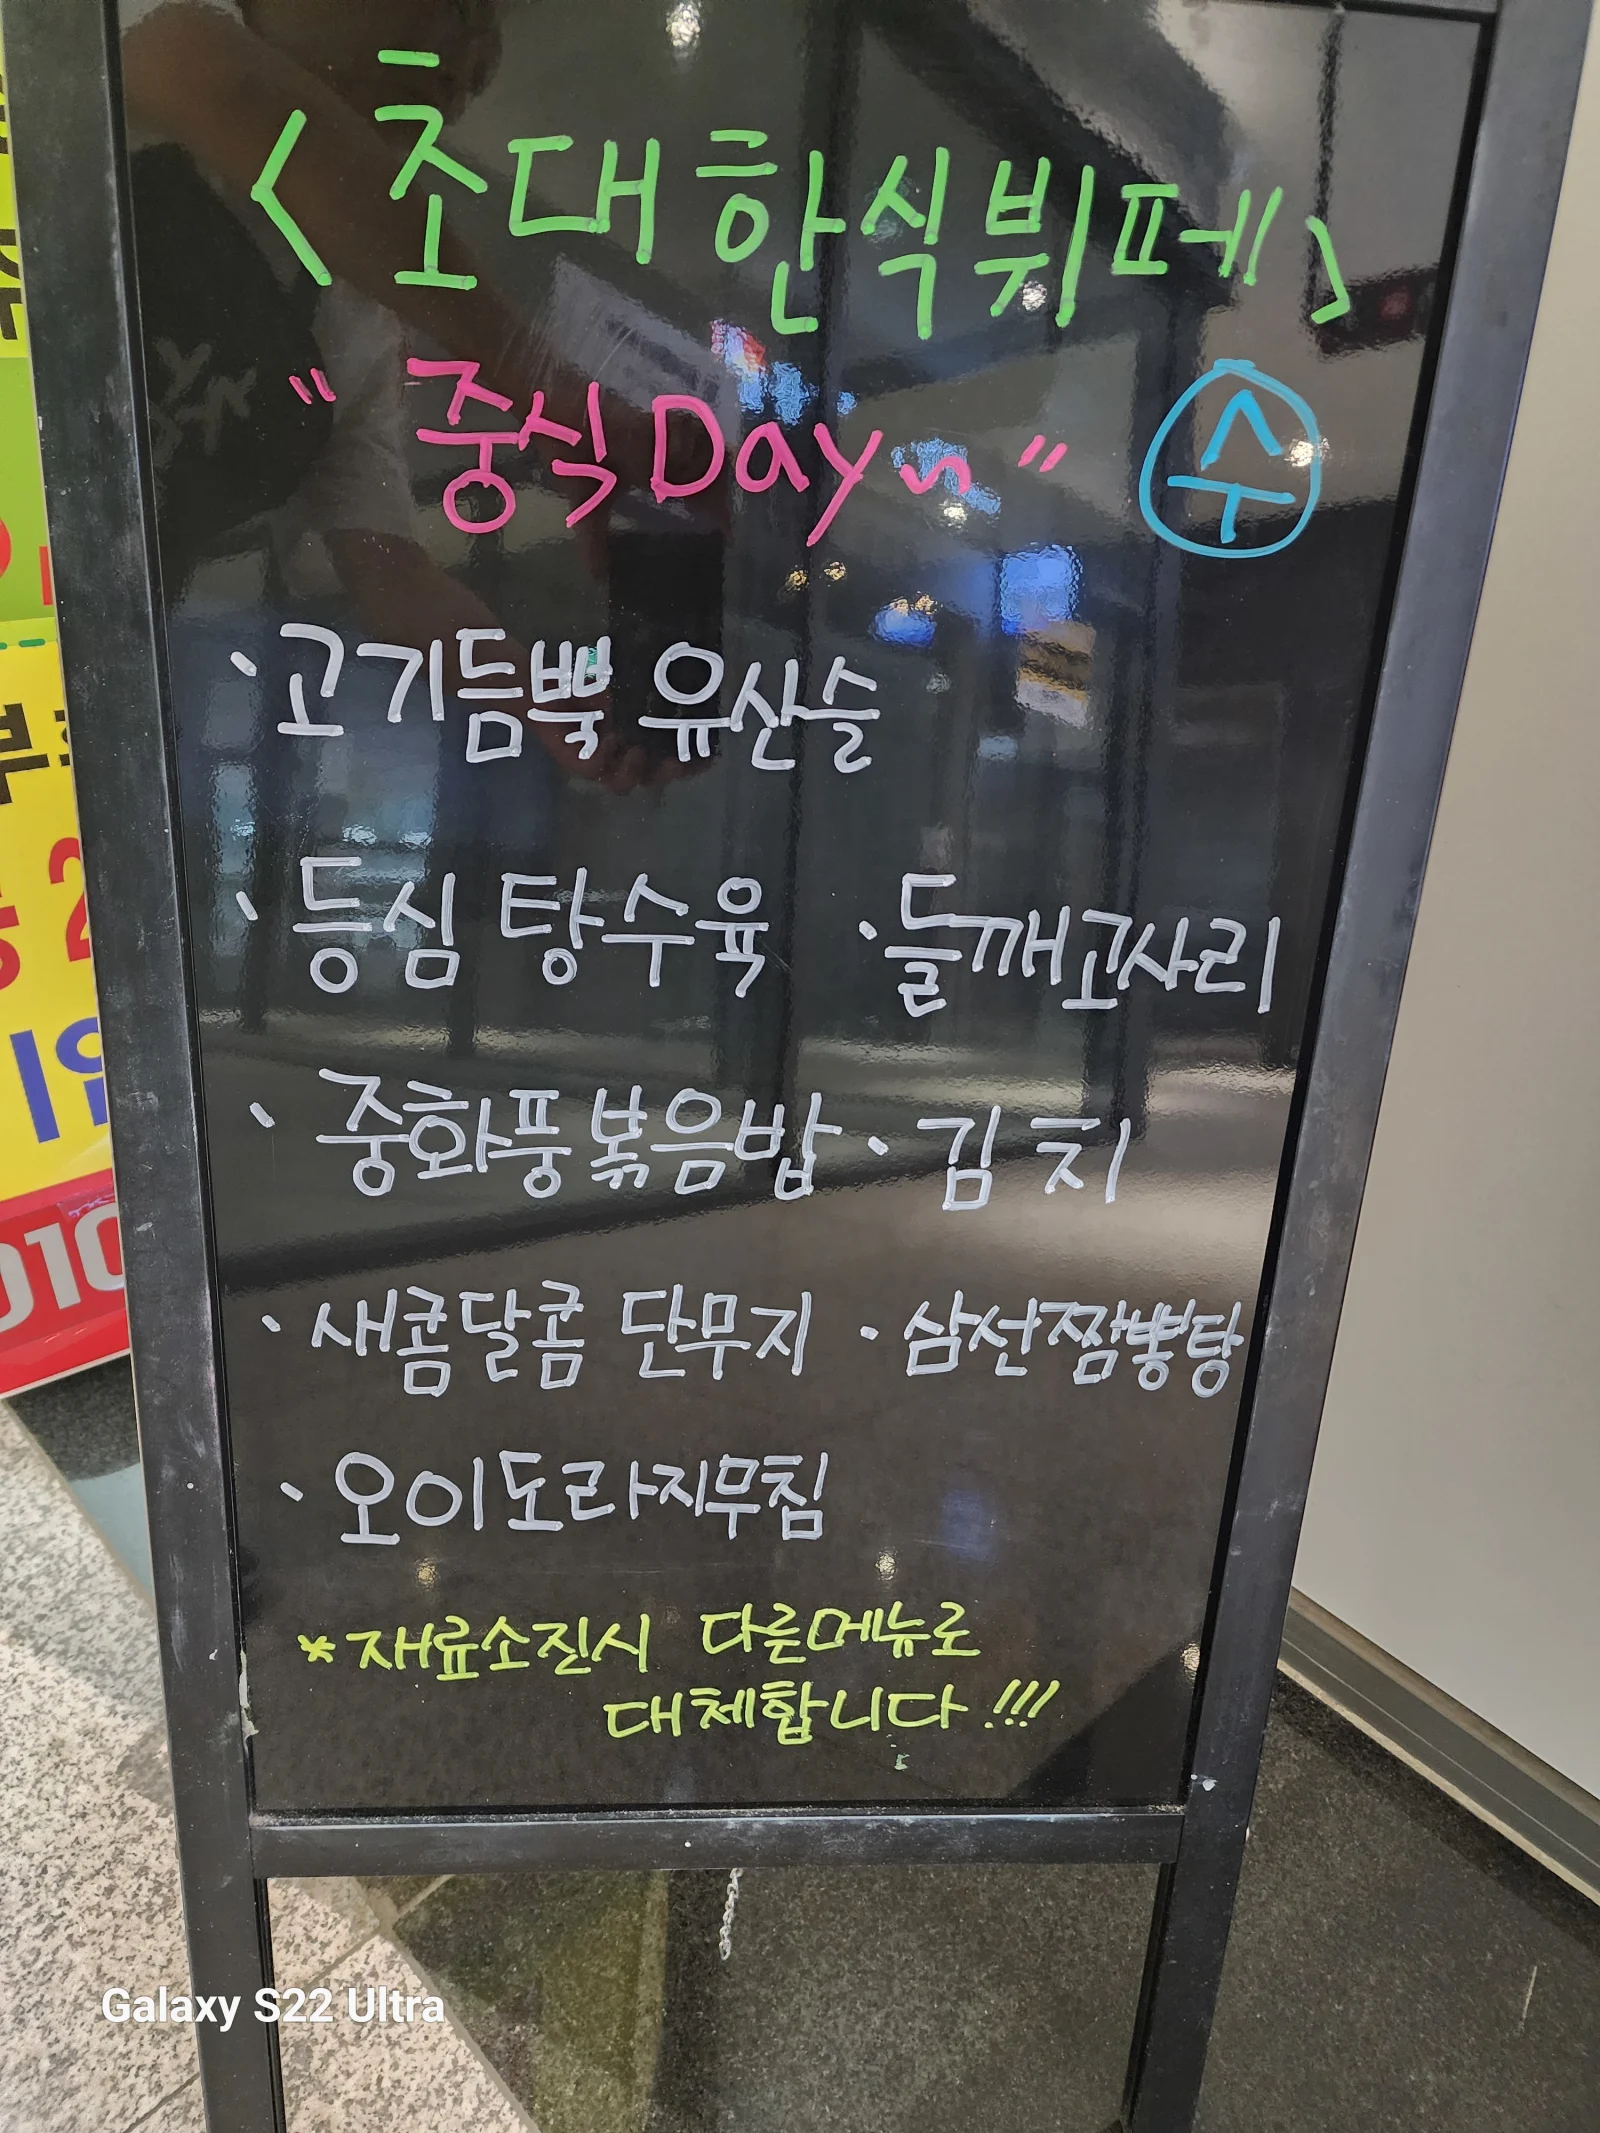 <초대 한식뷔페>
"중식Day~" 수
·고기듬뿍 유산슬
·등심 탕수육 ·들깨고사리
·중화풍볶음밥 ·김치
·새콤달콤 단무지 ·삼선짬뽕탕
·오이도라지무침
*재료소진시 다른메뉴로
대체합니다.!!!
010
Galaxy S22 Ultra